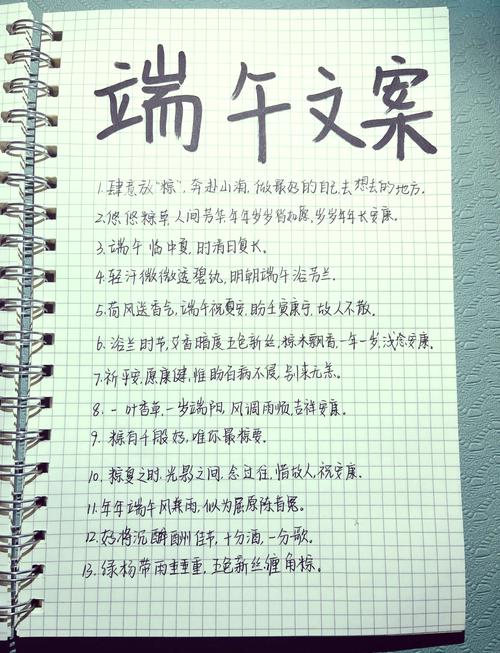 端午文案
1.肆意放“粽”,奔赴山海,做最好的自己,去想去的地方.
2.悠悠粽草,人间芳华年年岁岁皆如愿,岁岁年年长安康。
3.端午临中夏,时清日复长.
4.轻汗微微透碧纨,明朝端午浴芳兰.
5.荷风送香气,端午祝夏安,盼生安康宁,故人不散.
6.浴兰时节,艾香暗度五色新丝,粽木飘香,一年一岁,浅念安康.
7.祈平安,愿康健,惟盼百病不侵,别来无恙.
8.一叶香草,一岁端阳,风调雨顺,吉祥安康。
9.粽有千般好,唯你最粽要.
10.粽夏之时,光影之间,念过往,惜故人,祝安康.
11.年年端午风兼雨,似为屈原陈昔冤。
12.好将沉醉酬佳节,十分酒,一分歌.
13.绿杨带雨垂垂重,五色新丝缠角粽。